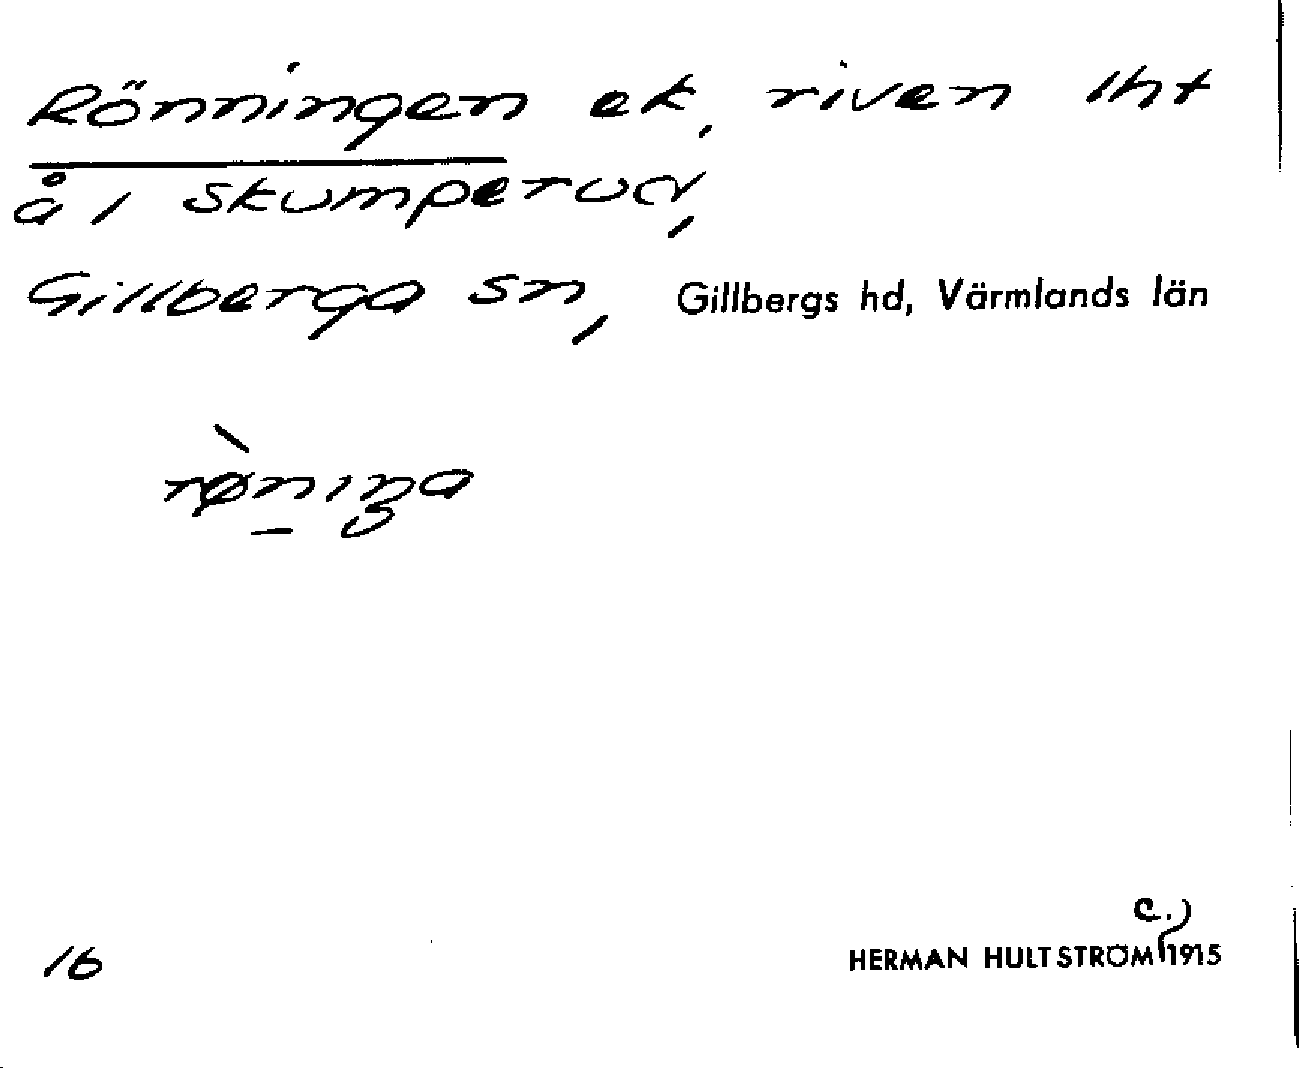 Rönningen ek, riven lht
å i Skumperud,
Gillberga sn, Gillbergs hd, Värmlands län
rø̀n̲iŋa
16
c.)
HERMAN HULTSTRÖM 1915